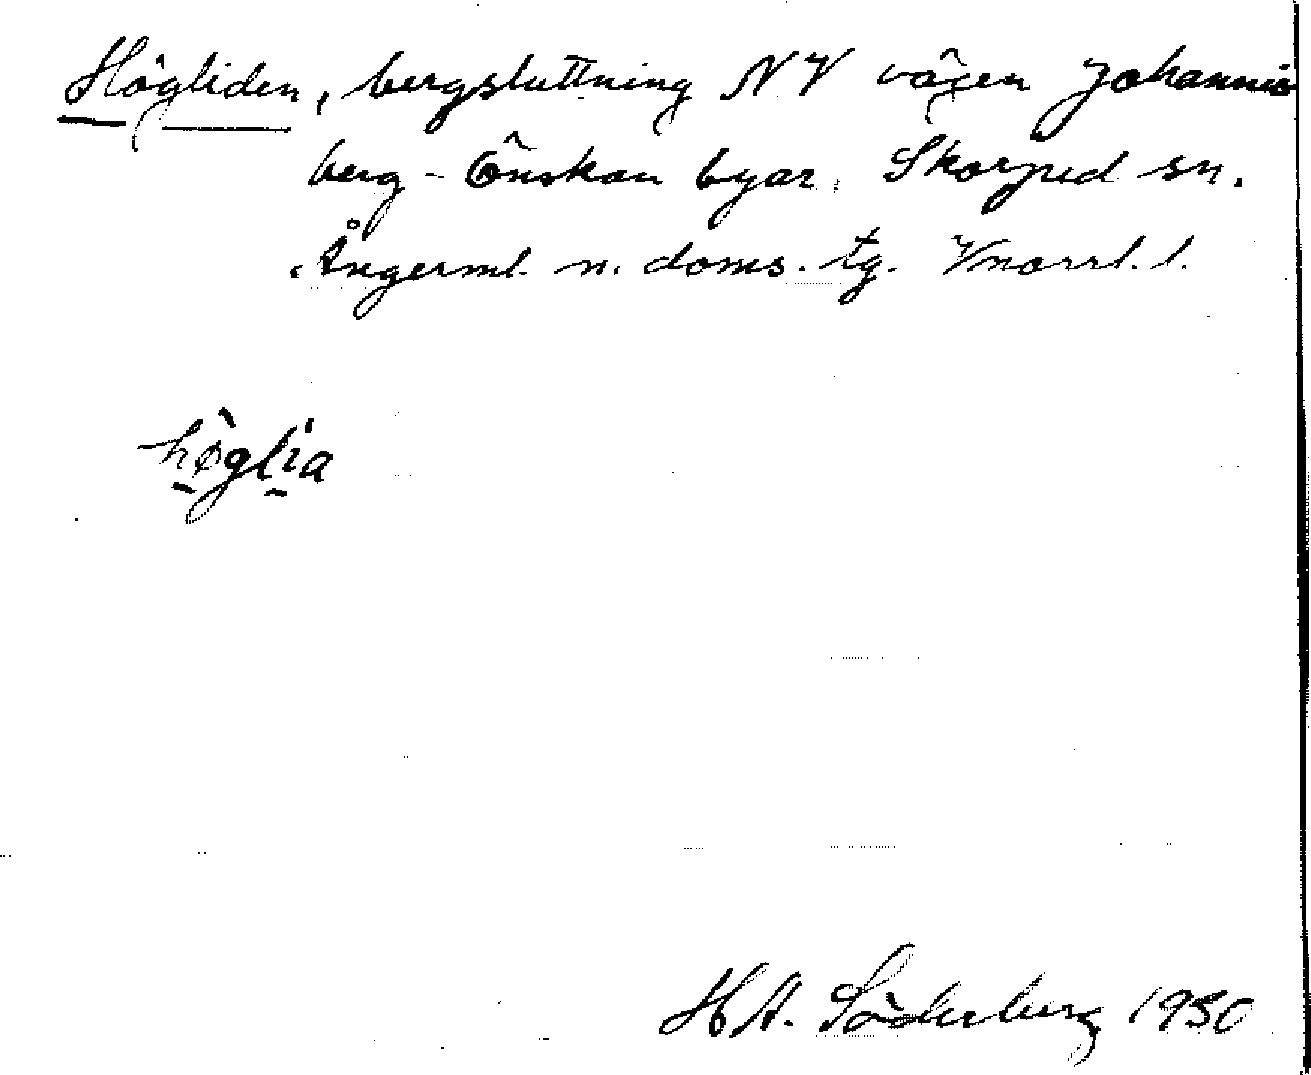 Högliden, bergsluttning NV vägen Johannis
berg - Önskan byar. Skorped sn.
Ångerml. n. doms. tg. Vnorrl. l.
hø̀glia
H A. Söderberg 1950